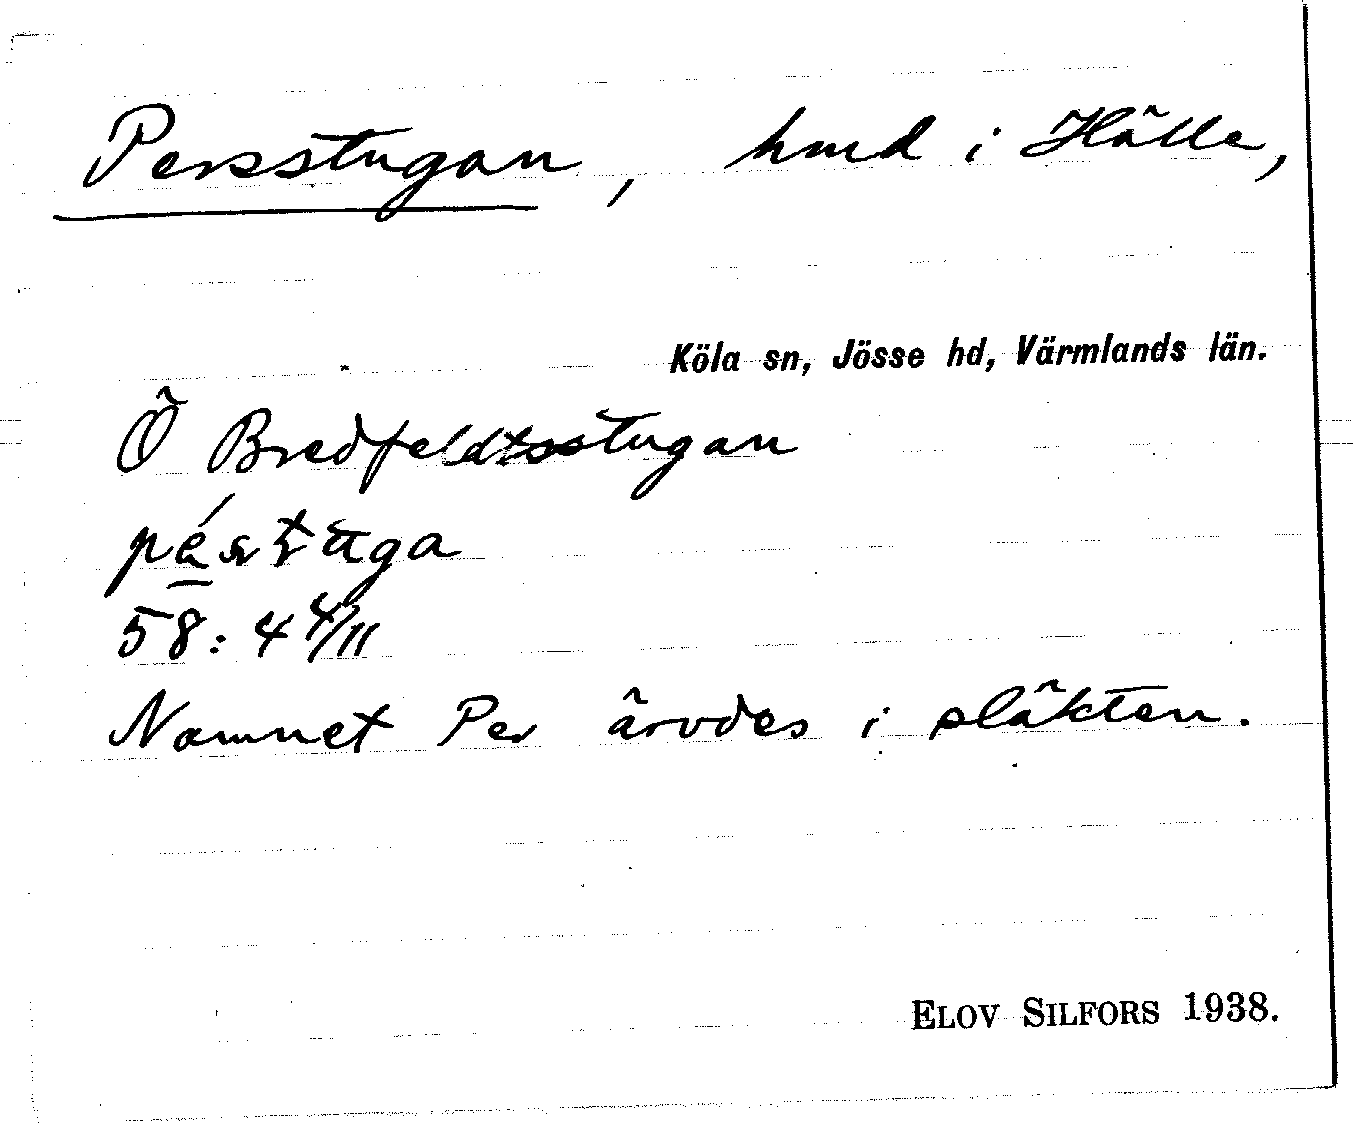 Persstugan, hmd i Hälle,
Köla sn, Jösse hd, Värmlands län.
Ö Bredfeldtsstugan
58:4 4/11
Namnet Per ärvdes i släkten.
ELOV SILFORS 1938.